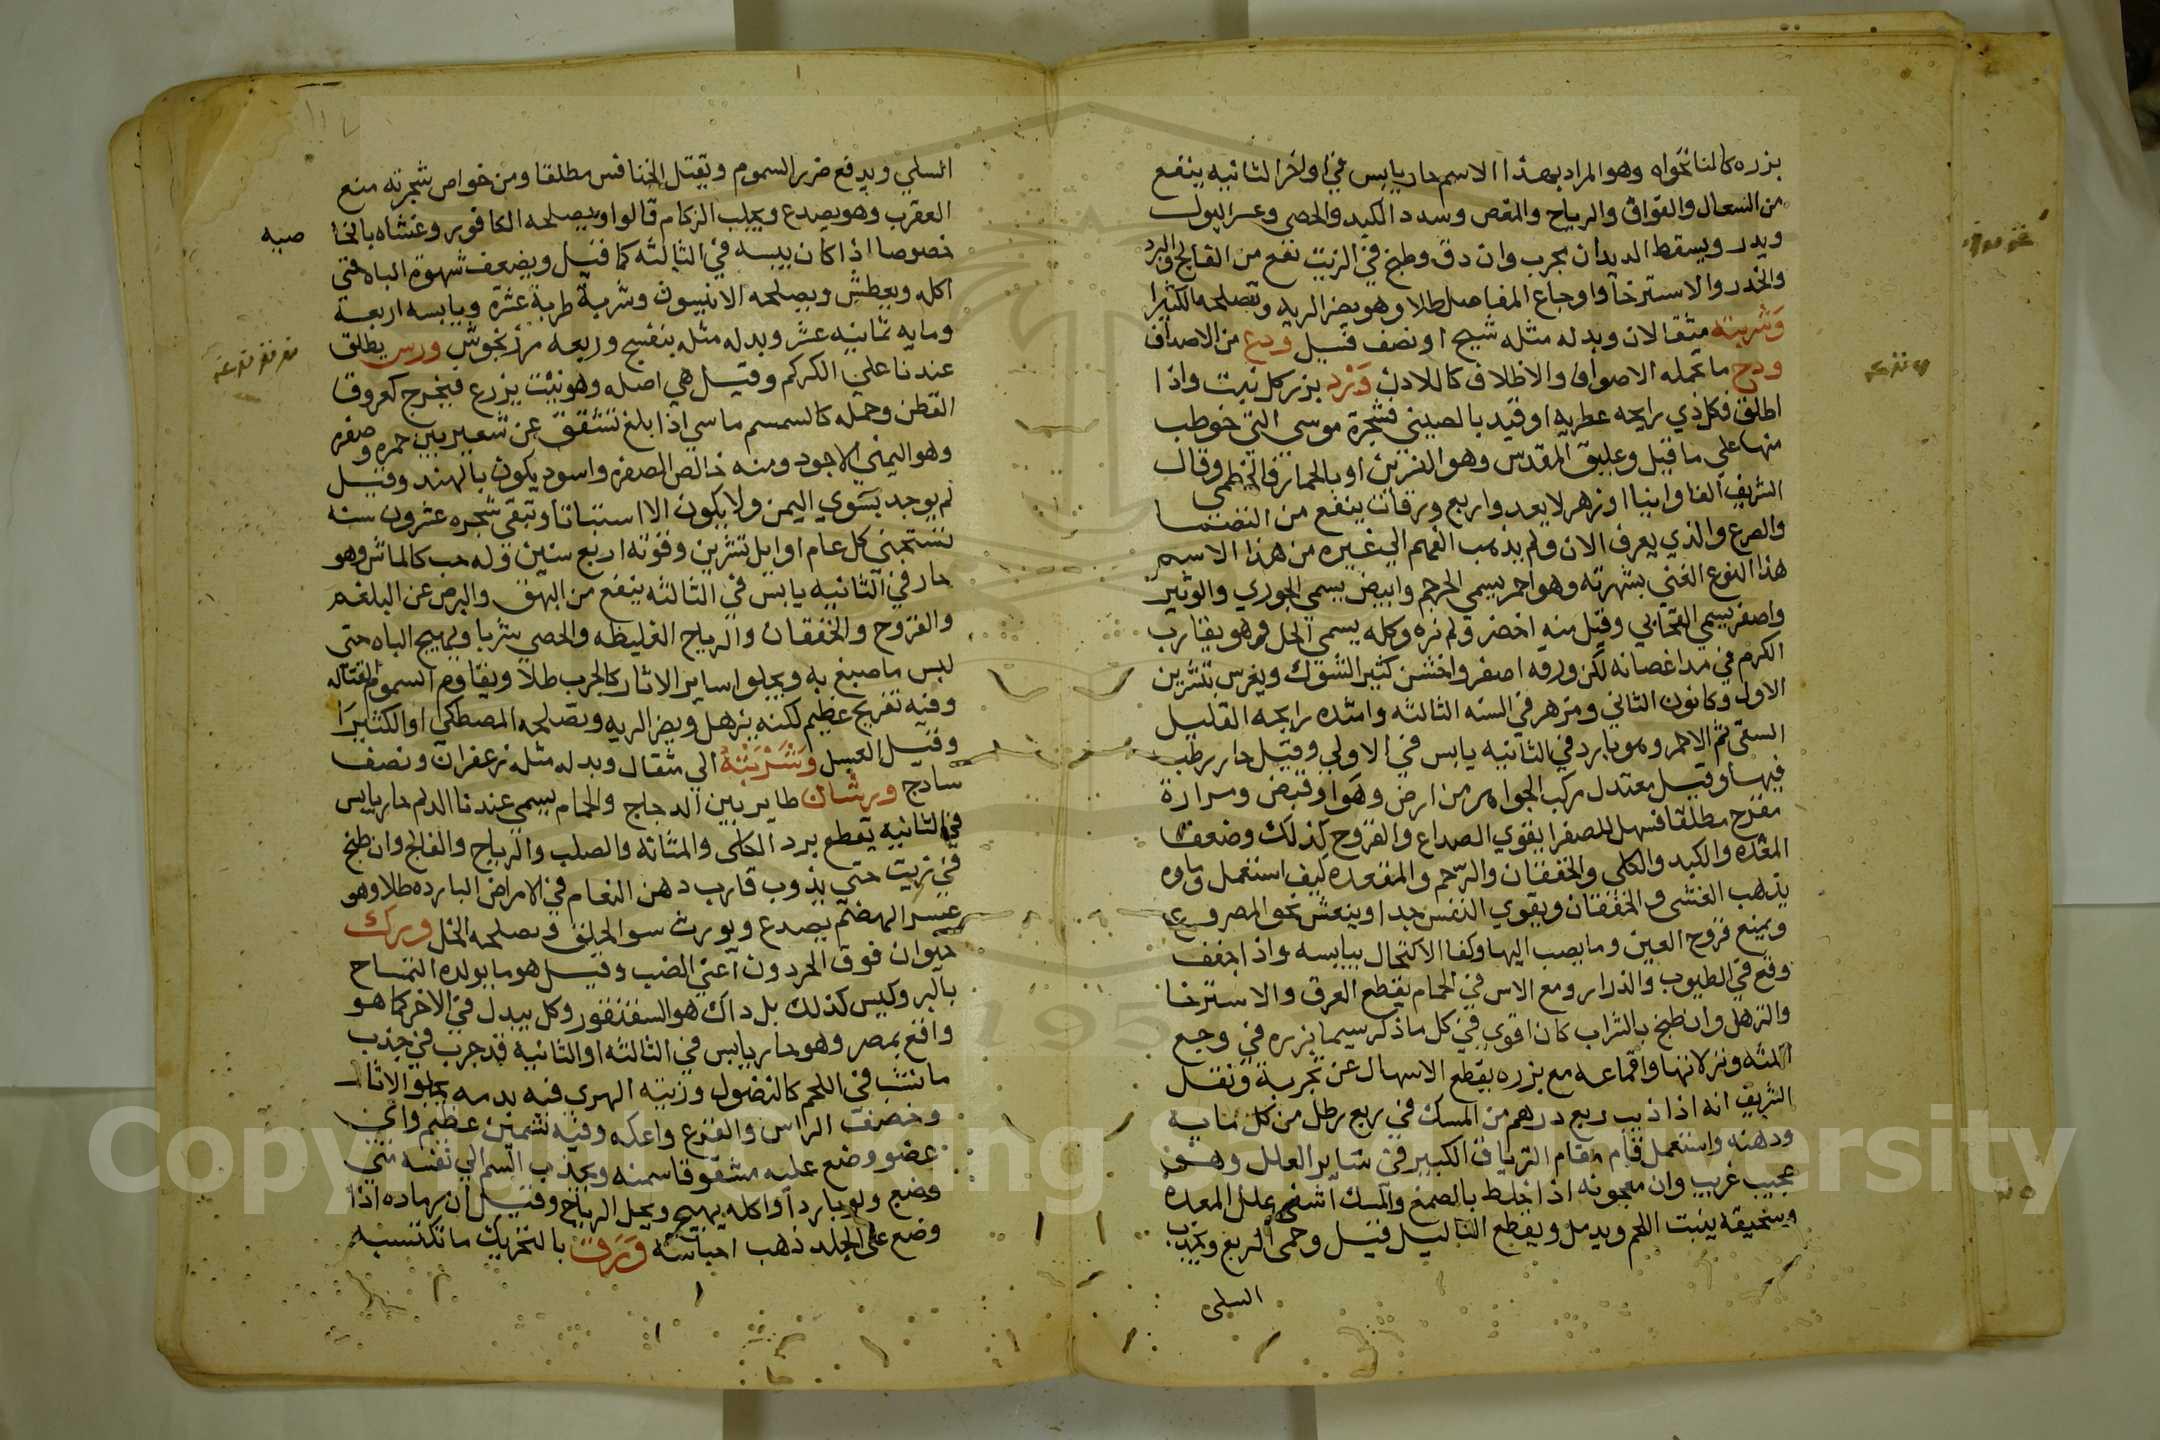 بزره كالنانخواه وهو المراد بهذا الاسم حار يابس في اولاخر الثانيه ينفع
من السعال والفواق والرياح والمغص وسدد الكبد والحصى وعسر البول
ويدر ويسقط الديدان بجرب وان دق وطبخ في الزيت نفع من الفالج والبرد
والخدر والاسترخا واوجاع المفاصل طلا وهو يضر الريه وتصلحه الكثيرا
وشربته مثقالان وبدله مثله شيح او نصف قيل ودع من الاصداف
ودح ما تحمله الاصواف والاظلاف كاللادن ورد بزر كل نبت واذا
اطلق فكل ذي رايحه عطريه او قيد بالصيني فشجرة موسى التي خوطب
منها على ما قيل وعليق المقدس وهو النسرين او بالحمار فالخطمي وقال
الشريف الفاوانيا او زهر لا يعد واربع ورقات ينفع من
والصرع والذي يعرف الان ولم يذهب الفهم الى غيره من هذا الاسم
هذا النوع الغني بشهرته وهو احمر يسمى الحرجم وابيض يسمى الجوري والوتير
واصفر يسمى القحابي وقيل منه اخضر ولم نره وكله يسمى الحل وهو يقارب
الكرم في مد اغصانه لكن ورقه اصغر واخشن كثير الشوك ويغرس بتشرين
الاول وكانون الثاني ويزهر في السنه الثالثه واشده رايحه القليل
السقي ثم الاحمر وهو بارد في الثانيه يابس في الاولى وقيل حار رطب
فيها وقيل معتدل مركب الجواهر من ارض وهوا وقبض ومرارة
مفرح مطلقا مسهل للصفرا يقوي الصداع والقروح كذلك وضعف
المعده والكبد والكلى والخفقان والرحم والمقعده كيف استعمل وماوه
يذهب الغشى والخفقان ويقوي النفس جدا وينعش نحو المصروع
ويمنع قروح العين وما يصب اليها وكفا الاكتحال بيابسه واذا جفف
وقع في الطيوب والذراير ومع الاس في الحمام يقطع العرق والاسترخا
والترهل وان طبخ بالشراب كان اقوى في كل ما ذكر سيما بزره في وجع
اللثه ونزلاتها واقماعه مع بزره يقطع الاسهال عن تجربة ونقل
الشريف انه اذا ذيب ربع درهم من المسك في ربع رطل من كل مايه
ودهنه واستعمل قام مقام الترياق الكبير في ساير العلل وهو
عجيب غريب وان معجونه اذا خلط بالصمغ والمسك اشفى علل المعده
وسحيقه ينبت اللحم ويدمل ويقطع الثاليل قيل وحمى الربع ويجذب
السلى
السلى ويدفع ضرر السموم ويقتل الخنافس مطلقا ومن خواص شجرته منع
العقرب وهو يصدع ويجلب الزكام قالوا ويصلحه الكافور وغشاه بالخا
صيه
خصوصا اذا كان يبسه في الثالثه كما قيل ويضعف شهوة الباه متى
اكله ويعطش ويصلحه الانيسون وشربة طرية عشرة ويابسه اربعة
ومايه ثمانيه عشر وبدله مثله بنفسج وربعه مرزنجوش ورس يطلق
عندنا على الكركم وقيل هي اصله وهو نبت يزرع فيخرج كعروق
القطن وحمله كالسمسم ما سي اذا بلغ تشقق عن شعير بين حمره وصفره
وهو اليمني الاجود ومنه خالص الصفره واسود يكون بالهند وقيل
لم يوجد بسوي اليمن ولا يكون الا استنباتا وتبقى شجره عشرون سنه
تستجنى كل عام اوايل تشرين وقوته اربع سنين وله حب كالماش وهو
حار في الثانيه يابس في الثالثه ينفع من البهق والبرص عن البلغم
والقروح والخفقان والرياح الغليظه والحصى شربا ويهيج الباه حتى
لبس ما صبغ به ويجلوا ساير الاثار كالجرب طلا ويقاوم السموم القتاله
وفيه تفريح عظيم لكنه يزهل ويضر الريه وتصلحه المصطكي او الكثيرا
وقيل العسل وشربته الى مثقال وبدله مثله زعفران ونصف
سادج ورشان طاير بين الدجاج والحمام يسمى عندنا الدلم حار يابس
في الثانيه يقطع برد الكلى والمثانه والصلب والرياح والفالج وان طبخ
في زيت حتى يذوب قارب دهن النعام في الامراض البارده طلا وهو
عسر الهضم يصدع ويورث سو الخلق ويصلحه الخل ورك
حيوان فوق الحردون اعني الضب وقيل هو ما يولده التمساح
بالبر وليس كذلك بل داك هو السقنقور وكل يبدل في الاخر كما هو
واقع بمصر وهو حار يابس في الثالثه او الثانية قد جرب في جذب
ما نشب في اللحم كالنصول وزيته الهري فيه بدمه يجلو الاثار
وخصف الراس والقرع واعكه وفيه تسمين عظيم واي
عضو وضع عليه مشقوقا سمنه ويجذب السم الى نفسه متى
وضع ولو باردا واكله يهيج ويحل الرياح وقيل ان رماده اذا
وضع على الجلد ذهب احساسه ورق بالتحريك ما تكتسبه